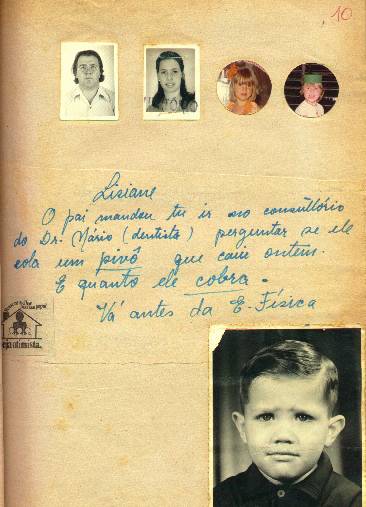 10
Lisiane
O pai mandou tu ir no consultório
do Dr. Mário (dentista) perguntar se ele
cola um pivô que caiu ontem.
E quanto ele cobra.
Vá antes da E. Física